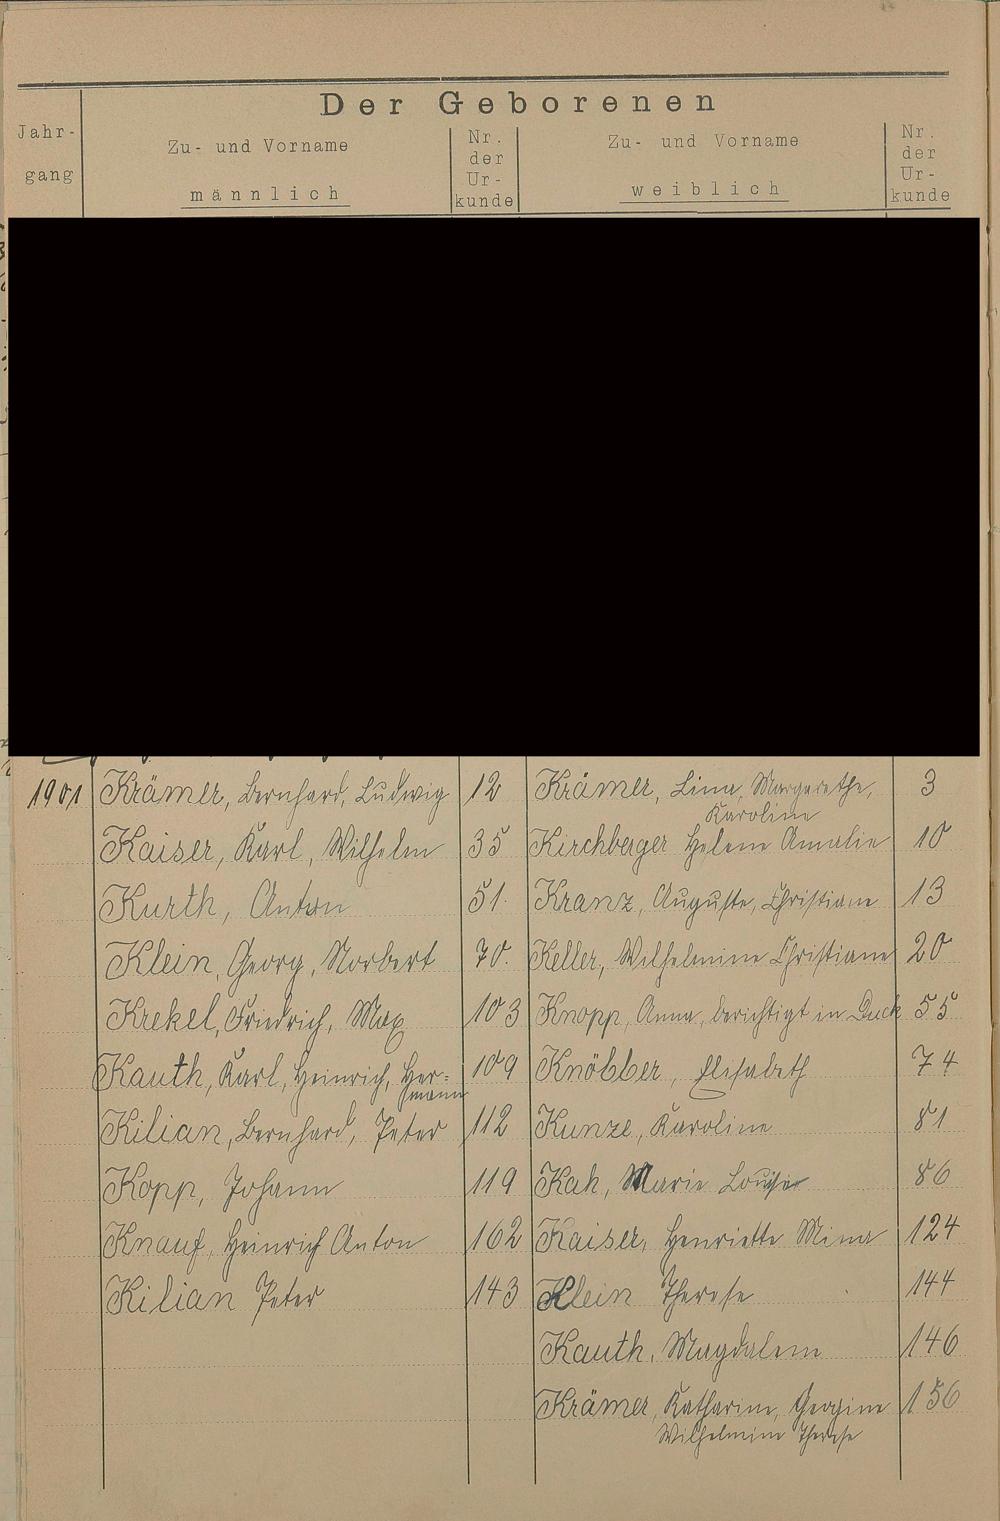 Der Geborenen
Jahr-
gang
Zu- und Vorname
männlich
Nr.
der
Ur-
kunde
Zu- und Vorname
weiblich
Nr.
der
Ur-
kunde
1901 Krämer, Bernhard, Ludwig 12 Krämer, Lina, Margarethe, 3
Karoline
Kaiser, Karl, Wilhelm 35 Kirchberger Helene Amalie 10
Kurth, Anton 51. Kranz, Auguste, Christiane 13
Klein, Georg, Norbert 70. Keller, Wilhelmine Christiane 20
Krekel, Friedrich, Max 103 Knopp, Anna, berichtigt in Duck 55
Kauth, Karl, Heinrich, Her- 109 Knöbber, Elisabeth 74
mann
Kilian, Bernhard, Peter 112 Kunze, Karoline 81
Kopp, Johann 119 Kah, Marie Louise 86
Knauf, Heinrich Anton 162 Kaiser, Henriette Mina 124
Kilian Peter 143 Klein Therese 144
Kauth, Magdalene 146
Krämer, Katharine, Georgine 156
Wilhelmine Therese